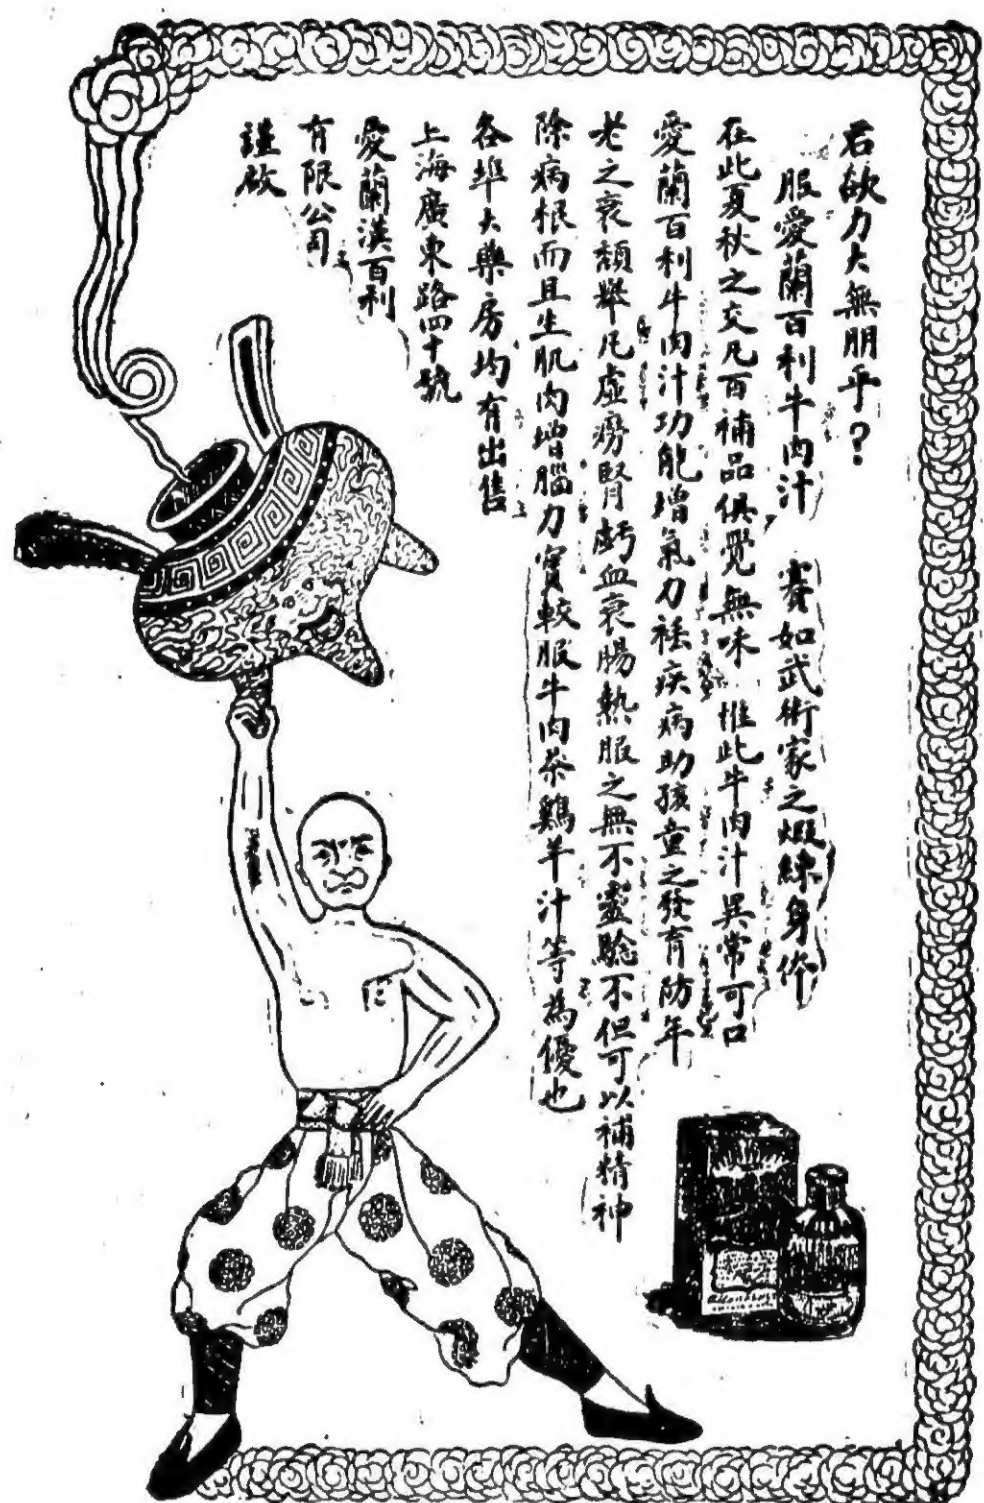 君欲力大無朋乎?
服愛蘭百利牛肉汁 賽如武術家之煅練身体
在此夏秋之交凡百補品俱覺無味 惟此牛肉汁異常可口
愛蘭百利牛肉汁功能增氣力祛疾病助孩童之發育防年
老之衰頹舉凡虛癆腎虧血衰腸熱服之無不靈驗不但可以補精神
除病根而且生肌肉增腦力實較服牛肉茶鷄羊汁等為優也
各埠大藥房均有出售
上海廣東路四十號
愛蘭漢百利
有限公司
謹啟